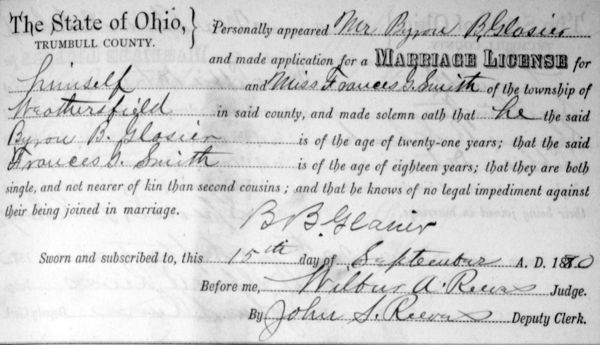 The State of Ohio, } Personally appeared Mr Byron B. Glasier
TRUMBULL COUNTY. and made application for a MARRIAGE LICENSE for
himself and Miss Frances G. Smith of the township of
Weathersfield in said county, and made solemn oath that he the said
Byron B. Glasier is of the age of twenty-one years; that the said
Frances G. Smith is of the age of eighteen years; that they are both
single, and not nearer of kin than second cousins; and that he knows of no legal impediment against
their being joined in marriage.
B. B. Glasier
Sworn and subscribed to, this 15th day of September A. D. 1880
Before me, Wilbur A. Reeves Judge.
By John S. Reeves Deputy Clerk.